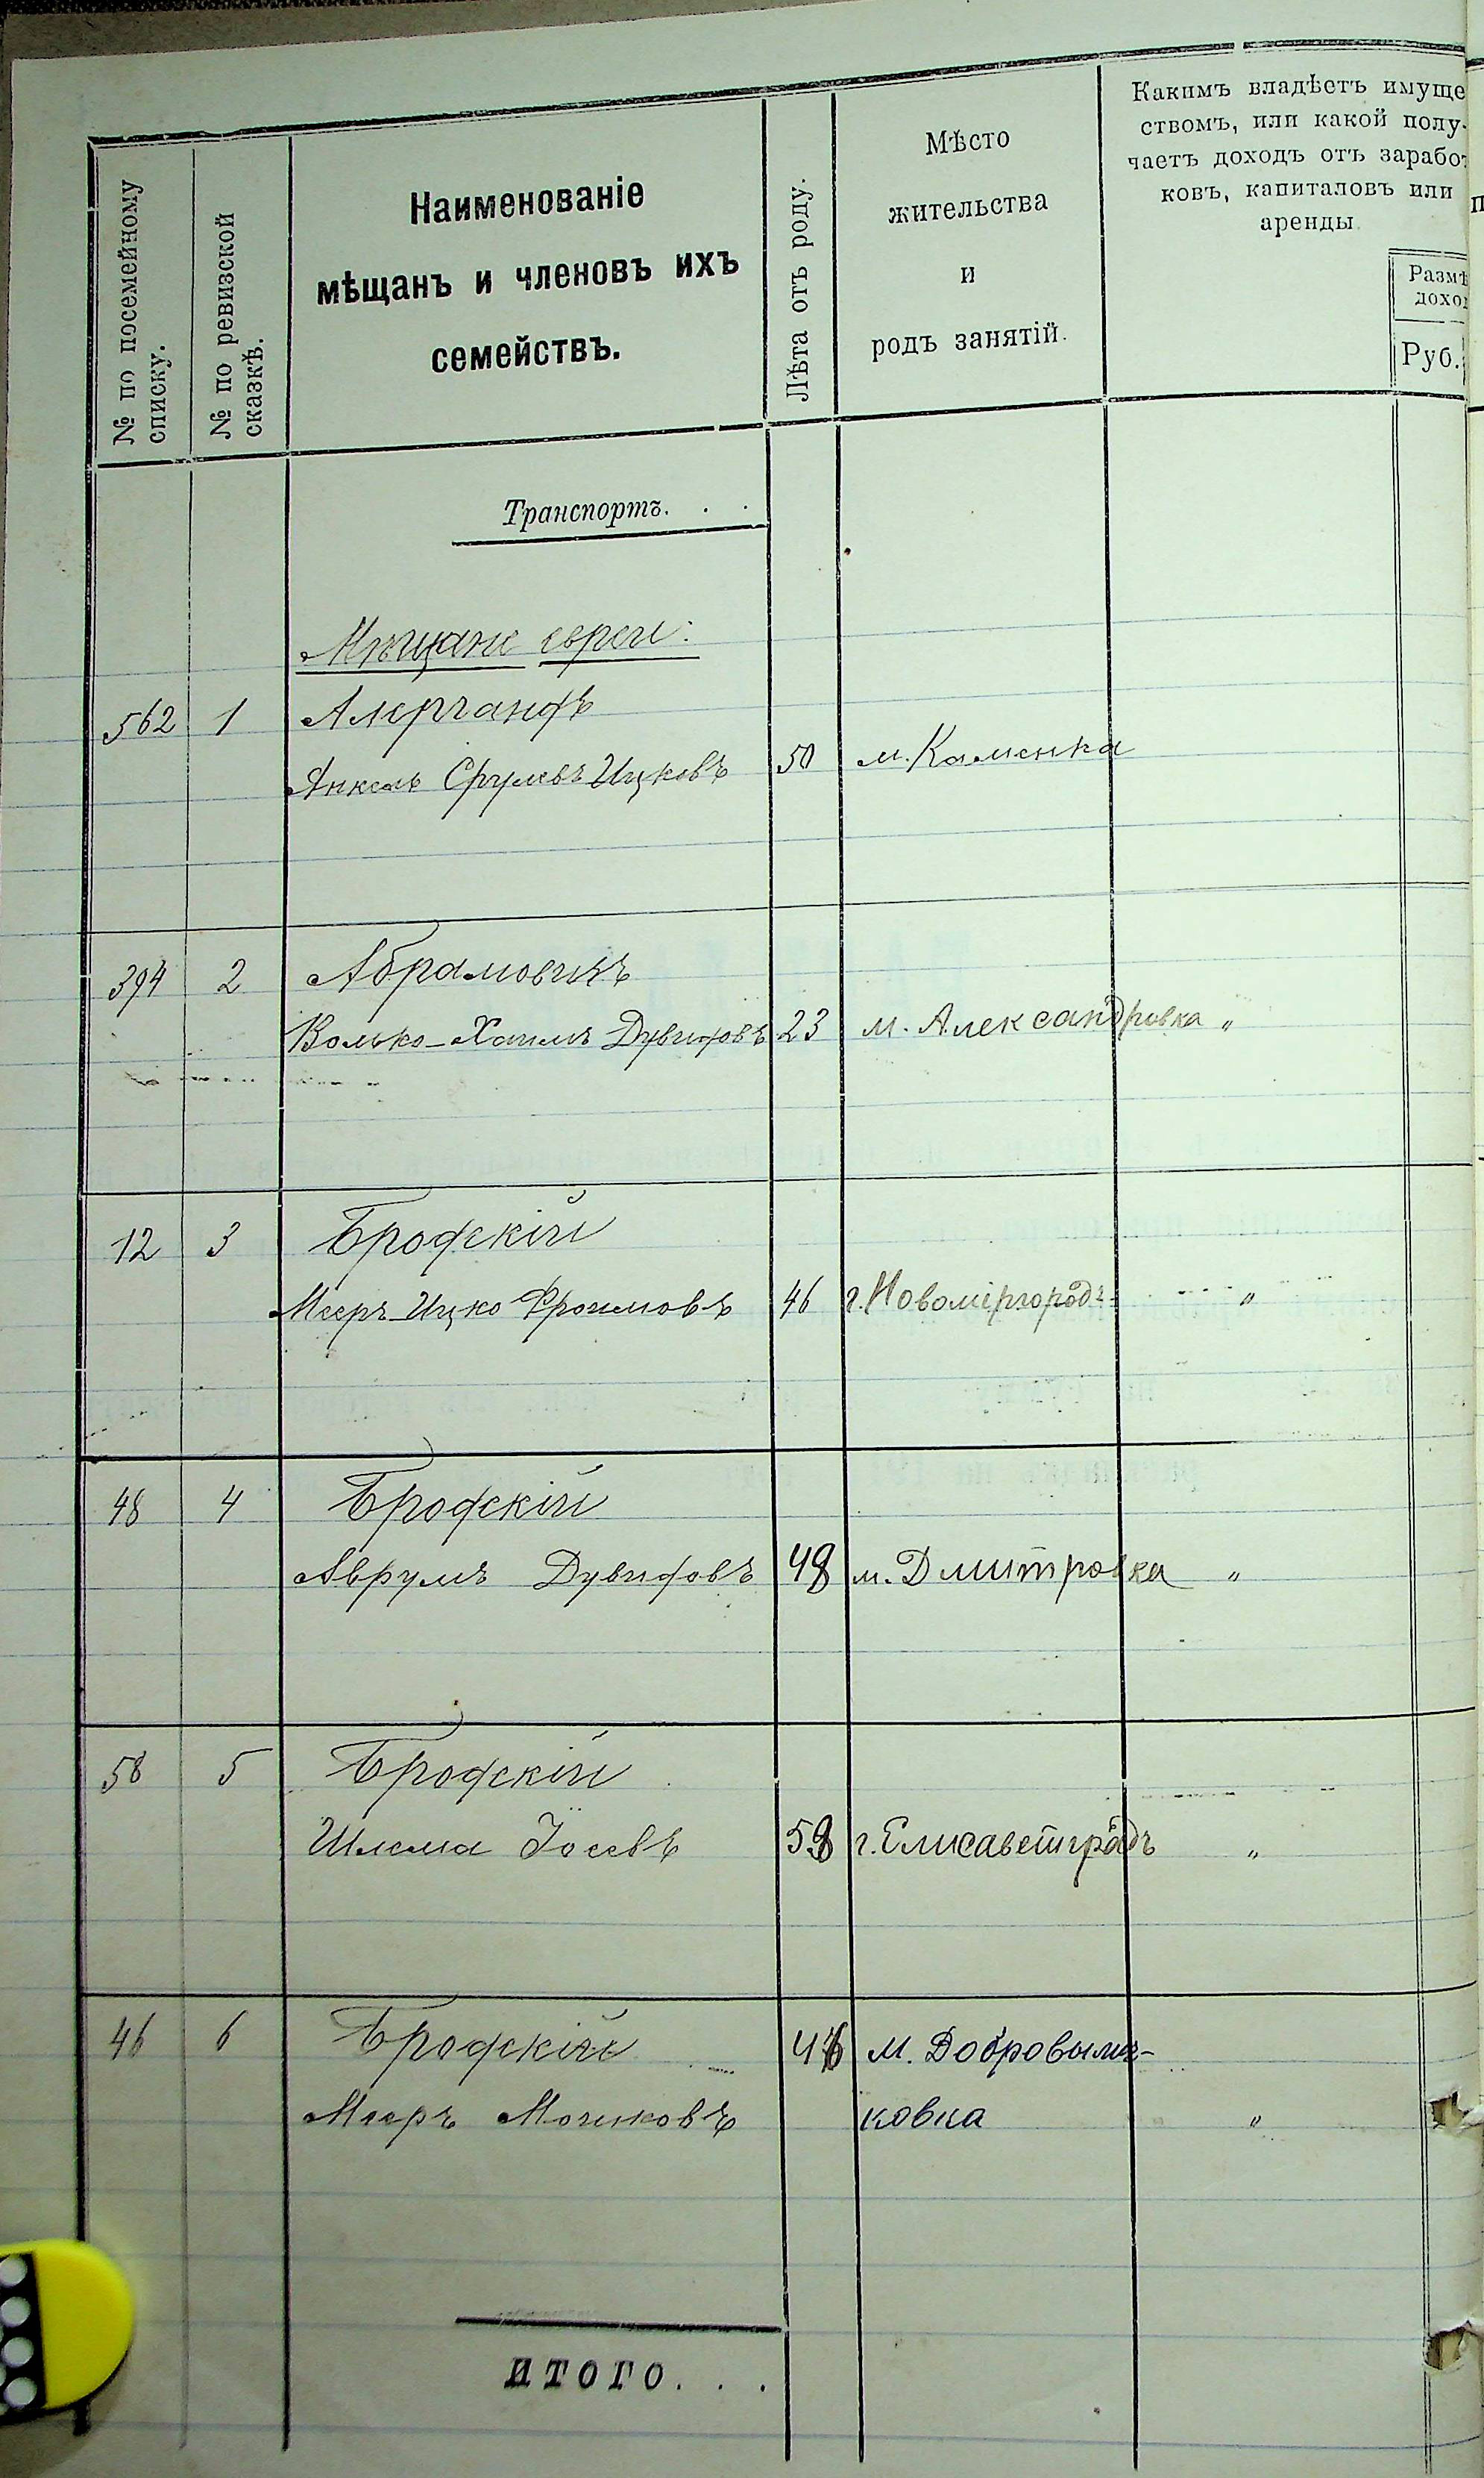 № по посемейному
списку.
№ по ревизской
сказкѣ.
Наименованіе
мѣщанъ и членовъ ихъ
семействъ.
Лѣта отъ роду.
Мѣсто
жительства
и
родъ занятій.
Какимъ владѣетъ имуще
ствомъ, или какой полу-
чаетъ доходъ отъ зарабо
ковъ, капиталовъ или
аренды
Размѣ
дохо
Руб.
Транспортъ. . .
Мѣщане евреи:
562 1 Алергандъ
Анкель Срулевъ Ицковъ 50 м. Каменка
394 2 Абрамовичъ
Волько-Хаимъ Дувидовъ 23 м. Александровка "
12 3 Бродскій
Мееръ-Ицко Фроимовъ 46 г. Новоміргородъ "
48 4 Бродскій
Аврумъ Дувидовъ 48 м. Дмитровка "
58 5 Бродскій
Шлема Іосевъ 58 г. Елисаветградъ "
46 6 Бродскій 46 м. Добровелич-
Мееръ Мошковъ ковка "
ИТОГО. . .